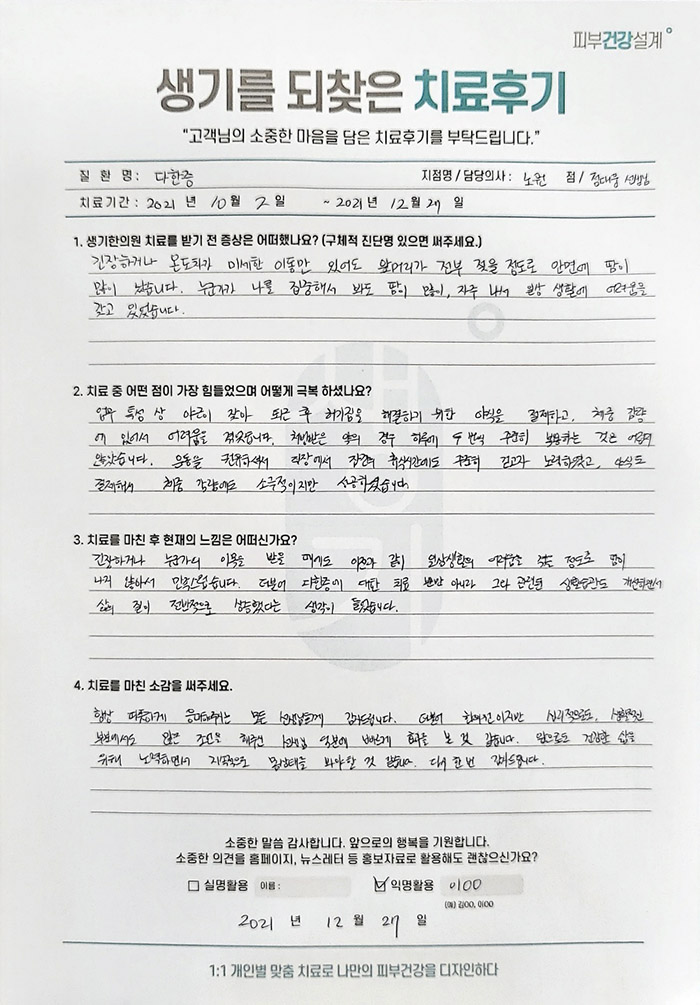 피부건강설계
생기를 되찾은 치료후기
"고객님의 소중한 마음을 담은 치료후기를 부탁드립니다."
질 환 명 : 다한증 지점명 / 담당의사 : 노원 점 / 정대웅 선생님
치료기간 : 2021 년 10 월 2 일 ~ 2021 년 12 월 27 일
1. 생기한의원 치료를 받기 전 증상은 어떠했나요? (구체적 진단명 있으면 써주세요.)
긴장하거나 온도차가 미세한 이동만 있어도 앞머리가 전부 젖을 정도로 안면에 땀이
많이 났습니다. 누군가가 나를 집중해서 봐도 땀이 많이, 자주 나서 일상 생활에 어려움을
갖고 있었습니다.
2. 치료 중 어떤 점이 가장 힘들었으며 어떻게 극복 하셨나요?
업무 특성 상 야근이 잦아 퇴근 후 허기짐을 해결하기 위한 야식을 절제하고, 체중 감량
에 있어서 어려움을 겪었습니다. 처방받은 약의 경우 하루에 두 번씩 꾸준히 복용하는 것은 어렵지
않았습니다. 운동을 권유하셔서 직장에서 휴식시간에도 꾸준히 걷고자 노력하였고, 야식도
절제해서 체중 감량에도 소극적이지만 성공하였습니다.
3. 치료를 마친 후 현재의 느낌은 어떠신가요?
긴장하거나 누군가의 이목을 받을 때에도 이전과 같이 일상생활의 어려움을 겪는 정도로 땀이
나지 않아서 만족스럽습니다. 더불어 다한증에 대한 치료 뿐만 아니라 그와 관련된 생활습관도 개선하면서
삶의 질이 전반적으로 상승했다는 생각이 들었습니다.
4. 치료를 마친 소감을 써주세요.
항상 따뜻하게 응대해주는 모든 선생님들께 감사드립니다. 더불어 한의원이지만 심리적으로도, 생활적인
부분에서도 많은 조언을 해주신 선생님 덕분에 빠르게 효과를 본 것 같습니다. 앞으로도 건강한 삶을
위해 노력하면서 지속적으로 몸상태를 봐야할 것 같습니다. 다시 한 번 감사드립니다.
소중한 말씀 감사합니다. 앞으로의 행복을 기원합니다.
소중한 의견을 홈페이지, 뉴스레터 등 홍보자료로 활용해도 괜찮으신가요?
실명활용 이름 : 익명활용 이OO
(예) 김OO, 이OO
2021 년 12 월 27 일
1:1 개인별 맞춤 치료로 나만의 피부건강을 디자인하다